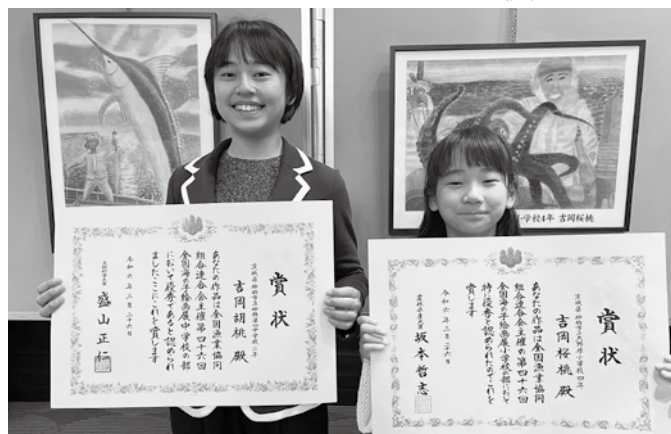 賞状
吉岡胡桃 殿
あなたの作品は全国漁業協同
組合連合会主催第四十六回
全国海の子絵画展中学校の部
において優秀であると認められ
ましたここにこれを賞します
令和六年三月二十六日
文部科学大臣
盛山正仁
学校4年 吉岡桜桃
賞状
吉岡桜桃 殿
あなたの作品は全国漁業協同
組合連合会主催の第四十六回
全国海の子絵画展小学校の部において
特に優秀と認められたのでこれを
賞します
令和六年三月二十六日
農林水産大臣
坂本哲志